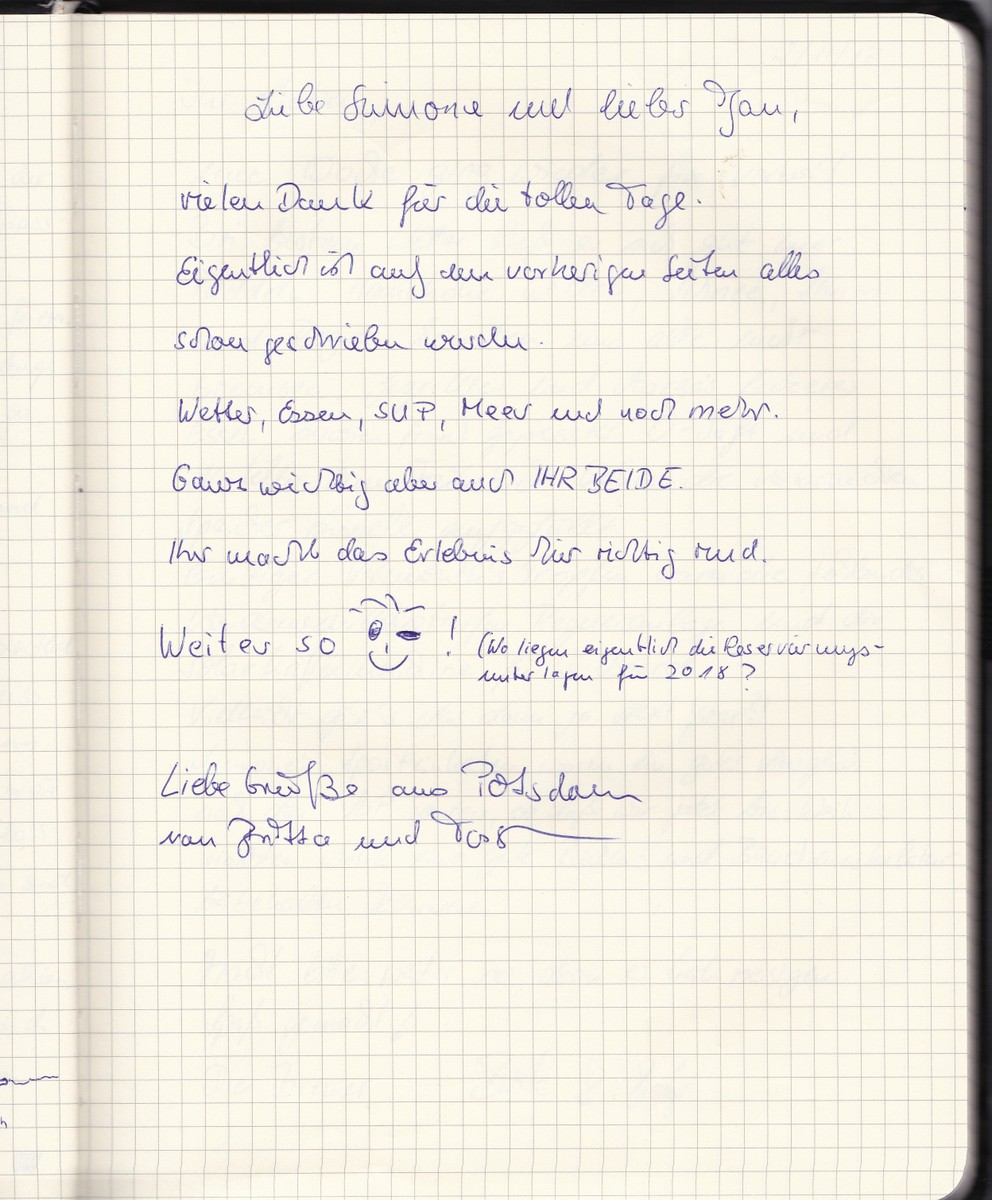 Liebe Simone und lieber Jan,
vielen Dank für die tollen Tage.
Eigentlich ist auf den vorherigen Seiten alles
schon geschrieben wurden.
Wetter, Essen, SUP, Meer und noch mehr.
Ganz wichtig aber auch IHR BEIDE.
Ihr macht das Erlebnis hier richtig rund.
Weiter so ! (Wo liegen eigentlich die Reservierungs-
unterlagen für 2018?
Liebe Grüße aus Potsdam
von Britta und